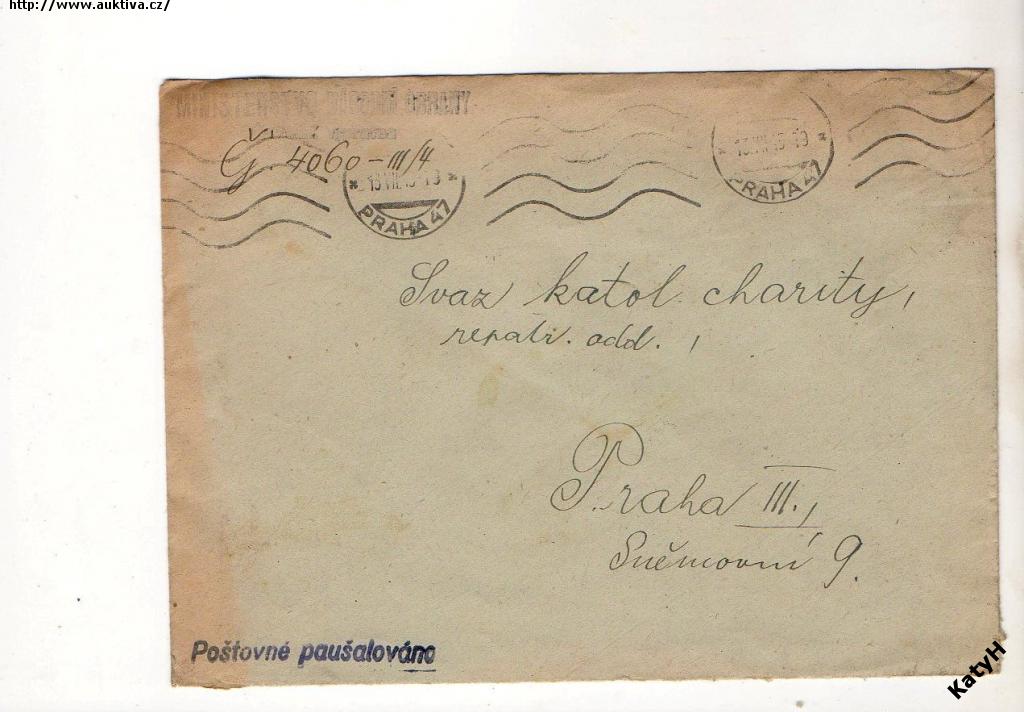 http://www.auktiva.cz/
MINISTERSTVO NÁRODNÍ OBRANY
Čj. 4060-III/4
PRAHA 47
PRAHA 47
Svaz katol. charity,
repatr. odd.,
Praha III.,
Sněmovní 9.
Poštovné paušalováno
KatyH